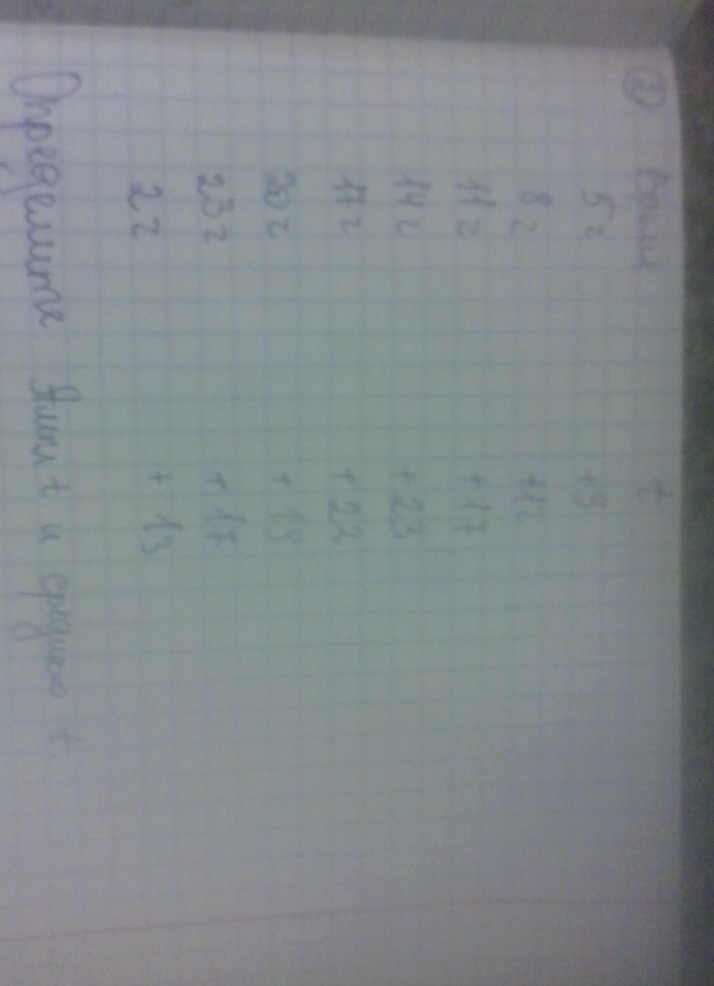 ② Время t
5 ч +9
8 ч +12
11 ч +17
14 ч +23
17 ч +22
20 ч +19
23 ч +17
2 ч +13
Определите Ампл t и среднюю t